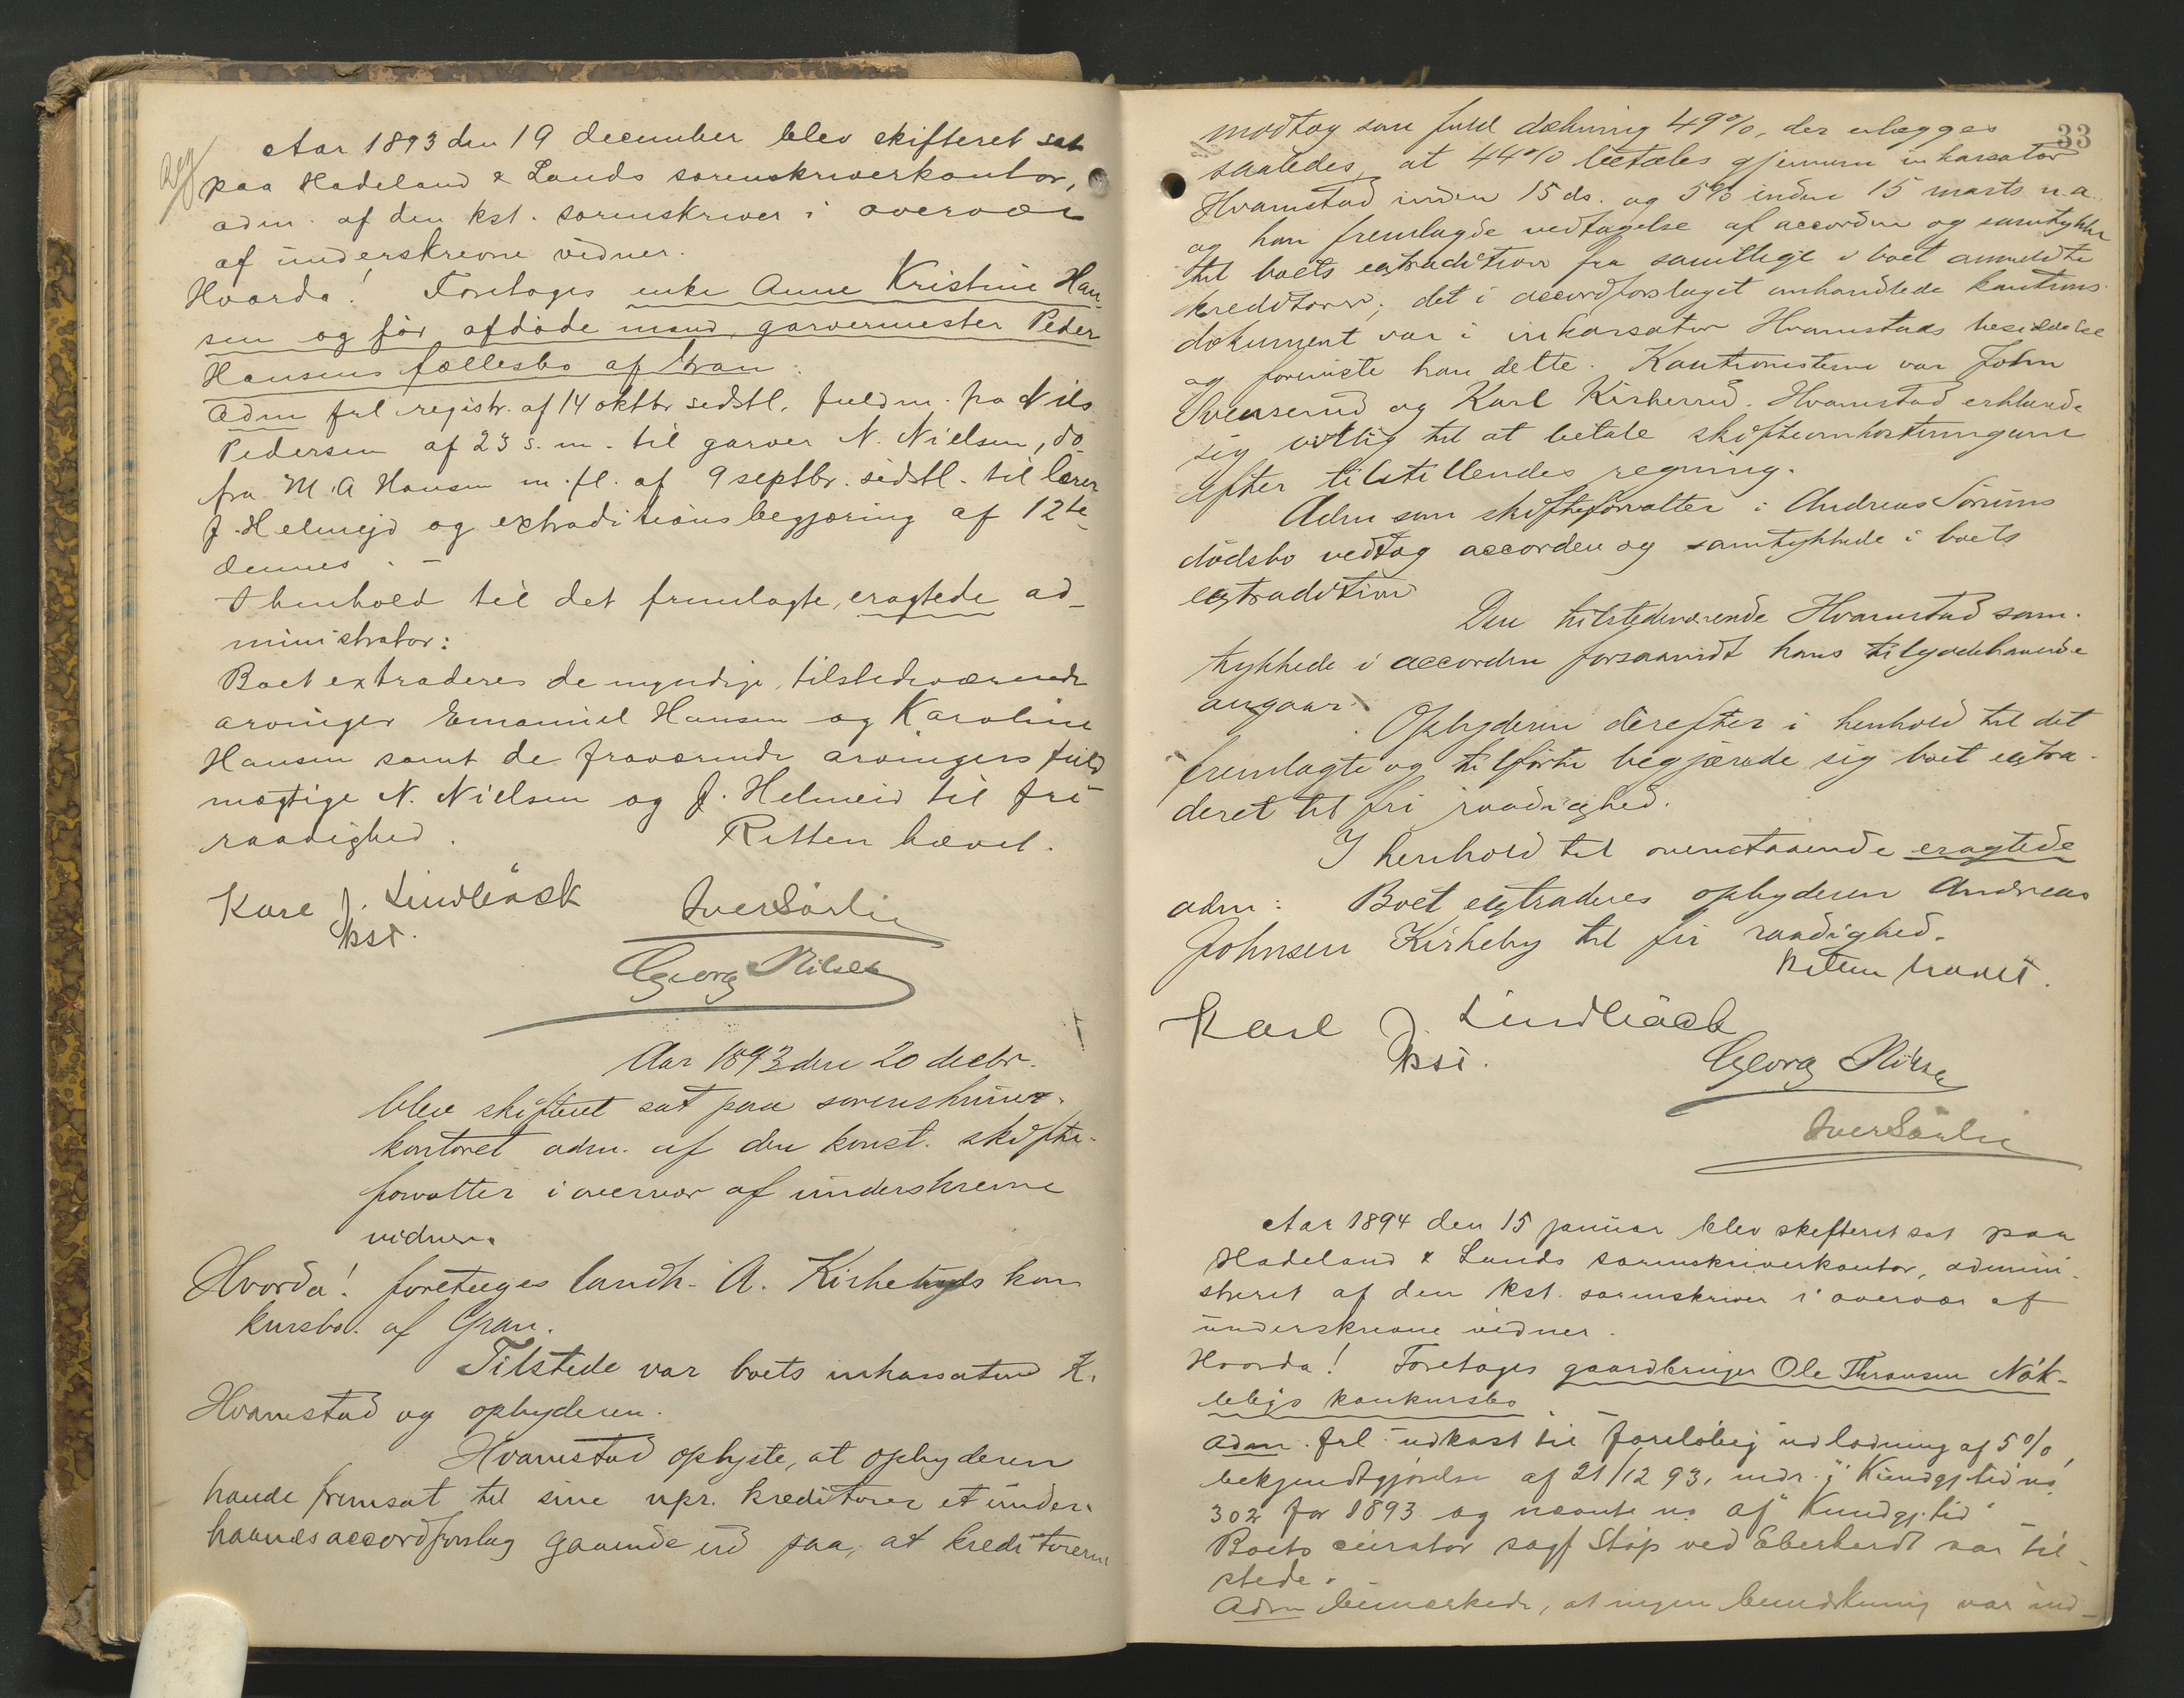 Aar 1893 den 19 december blev skifteret sat
paa Hadeland & Lands sorenskriverkontor,
adm. af den kst. sorenskriver i overvær
af underskrevne vidner.
Hvorda! Foretages enke Anne Kristine Han-
sen og før afdøde mand garvermester Peder
Hansens fællesbo af Gran.
Adm frl registr. af 14 oktbr sidstl. fuldm. fra Nils
Pedersen af 23 s. m. til garver N. Nielsen, do
fra M. A Hansen m. fl. af 9 septbr. sidstl. til lærer
J. Helmejd og extraditionsbegjæring af 12te
dennes. -
I henhold til det fremlagte, eragtede ad-
ministrator:
Boet extraderes de myndige, tilstedeværende
arvinger Emanuel Hansen og Karoline
Hansen samt de fraværende arvingers fuld
mægtige N. Nielsen og J. Helmeid til fri
raadighed. Retten hævet.
Karl J. Lindbäck Iver Sørlie
kst.
Georg Nilsen
Aar 1893 den 20 decbr.
blev skifteret sat paa sorenskriver-
kontoret adm. af den konst. skifte-
forvalter i overvær af underskrevne
vidner.
Hvorda! foretages landh. A. Kirkebys kon
kursbo af Gran.
Tilstede var boets inkassator K.
Hvamstad og opbyderen.
Hvamstad oplyste, at opbyderen
havde fremsat til sine upr. kreditorer et under-
haandsaccordforslag gaaende ud paa, at kreditorerne
33
modtog som fuld dækning 49%, der erlægges
saaledes, at 44% betales gjennem inkassator
Hvamstad inden 15 ds. og 5% inden 15 marts n. a.
og han fremlagde vedtagelse af accorden og samtykke
til boets extradition fra samtlige i boet anmeldte
kreditorer; det i accordforslaget omhandlede kautions-
dokument var i inkassator Hvamstads besiddelse
og foreviste han dette. Kautionisterne var John
Svenserud og Karl Kirkerud. Hvamstad erklærede
sig villig til at betale skifteomkostningerne
efter tilstillendes regning.
Adm som skifteforvalter i Andreas Sørums
dødsbo vedtog accorden og samtykkede i boets
extradition
Den tilstedeværende Hvamstad sam-
tykkede i accorden forsaavidt hans tilgodehavende
angaar.
Opbyderen derefter i henhold til det
fremlagte og tilførte begjærede sig boet extra-
deret til fri raadighed.
I henhold til ovenstaaende eragtede
adm: Boet extraderes opbyderen Andreas
Johnsen Kirkeby til fri raadighed.
Retten hævet.
Karl J. Lindbäck
kst.
Georg Nilsen
Iver Sørlie
Aar 1894 den 15 januar blev skifteret sat paa
Hadeland & Lands sorenskriverkontor, admini-
streret af den kst. sorenskriver i overvær af
underskrevne vidner.
Hvorda! Foretages gaardbruger Ole Thronsen Nøk-
lebys konkursbo
Adm. frl. udkast til foreløbig udlodning af 5%,
bekjendtgjørelse af 21/12 93, indr. i Kundgj.tid no
302 for 1893 og nævnte no af Kundgj.tid
Boets curator sagf Støp ved Eberherdt var til-
stede.
Adm bemærkede, at ingen bemærkning var ind-